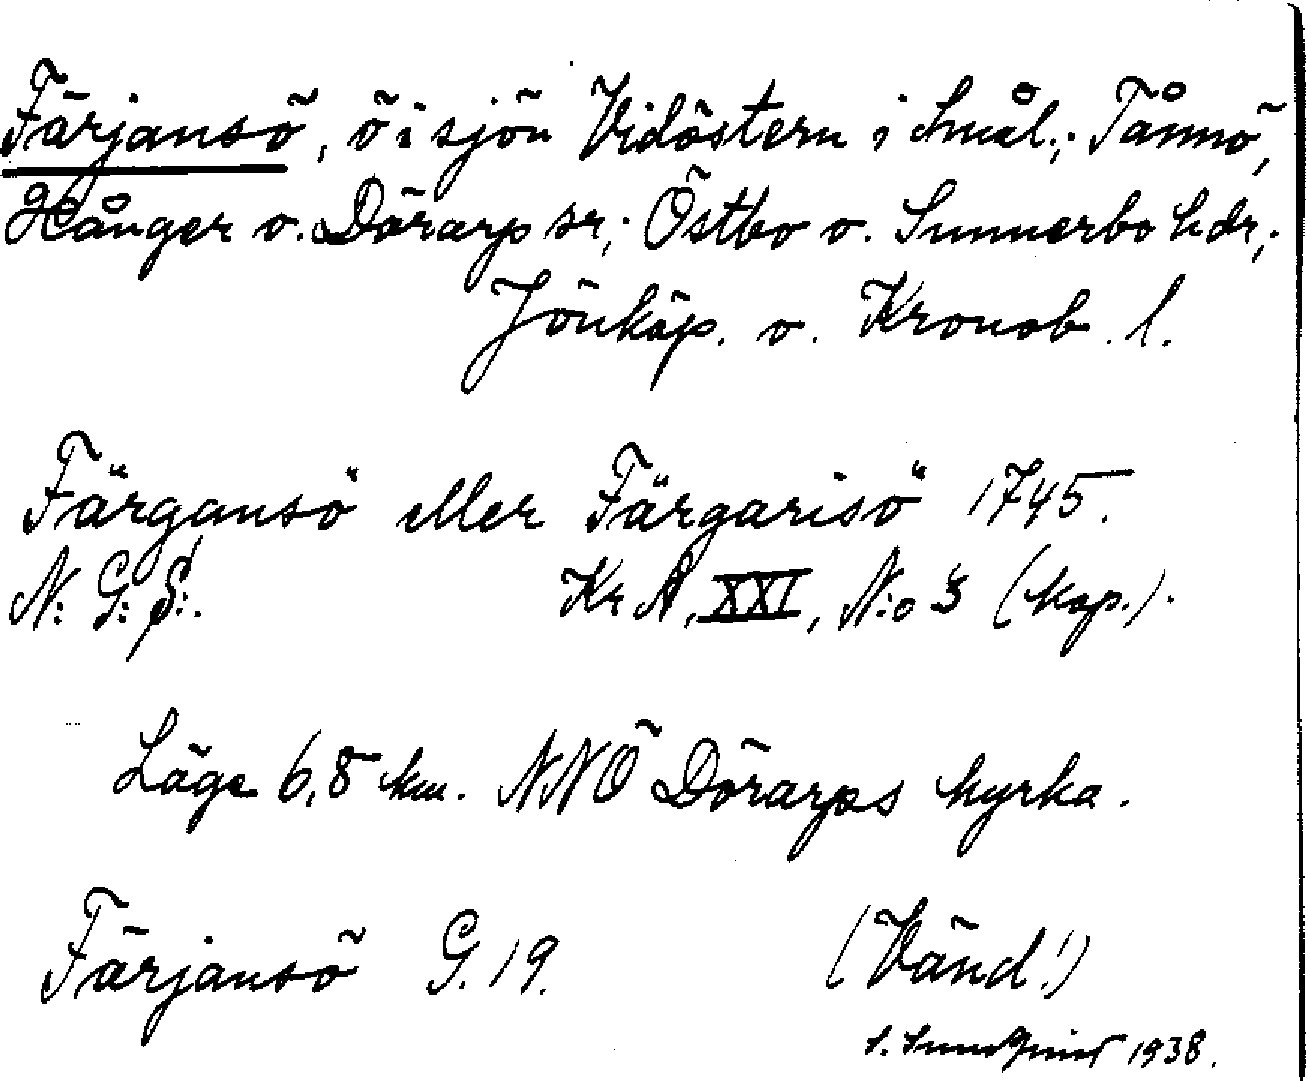 Färjansö, ö i sjön Vidöstern i Smål.; Tånnö,
Hånger o. Dörarp sr; Östbo o. Sunnerbo hdr;
Jönköp. o. Kronob. l.
Färgansö eller Färgarisö 1745.
N: G: S:. Kr A, XXI, N:o 3 (kop.).
Läge 6,8 km. NNÖ Dörarps kyrka.
Färjansö G. 19. (Vänd!)
S. Sundqvist 1938.